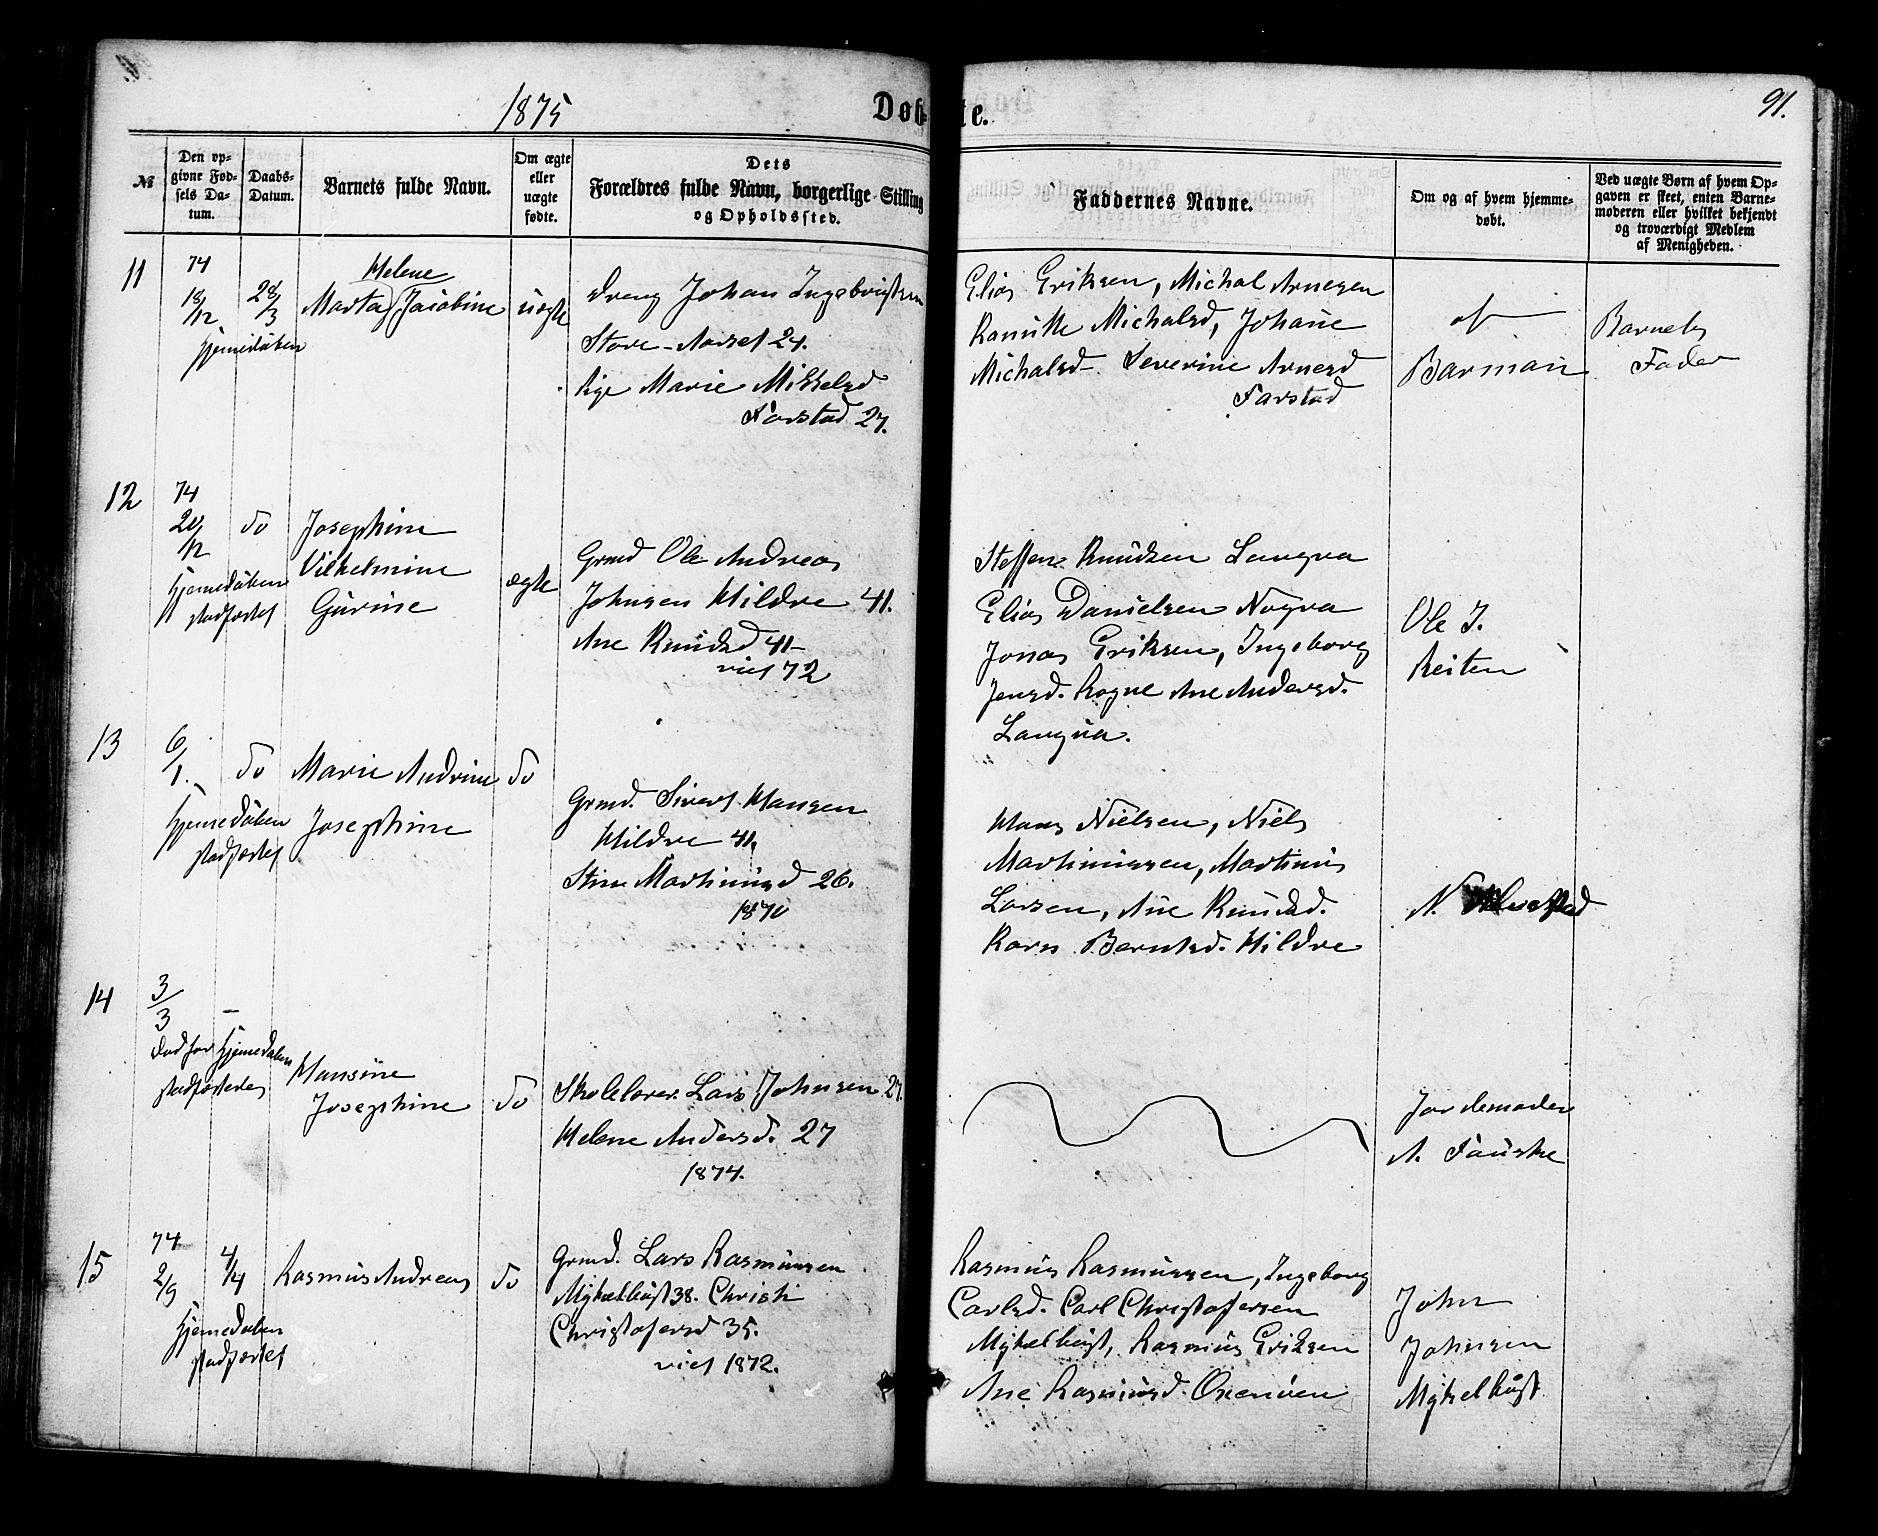 1875
Døbte.
91.
№
Den opgivne Fødsels Datum.
Daabs-Datum.
Barnets fulde Navn.
Om ægte eller uægte fødte.
Dets Forældres fulde Navn, borgerlige Stilling og Opholdssted.
Faddernes Navne.
Om og af hvem hjemmedøbt.
Ved uægte Børn af hvem Opgaven er skeet, enten Barnemoderen eller hvilket bekjendt og troværdigt Medlem af Menigheden.
11
74
18/12
28/3
hjemedøben
Helene
Marta Jacobine
uægte
dreng Johan Ingebrigtsen
Store-Aarset 24.
Pige Marie Mikkelsd
Farstad 27.
Elias Eriksen, Michal Arnesen
Michalsd, Johane
Michalsd Severine Arnesd
Farstad
af
Barman
Barnets
Fader
12
74
20/12
do
hjemedøben
stadfæstet
Josephine
Vilhelmine
Gurine
ægte
Grmd Ole Andreas
Johnsen Hildre 41.
Ane Knudsd 41
viet 72
Steffen Knudsen Longva
Elias Danielsen Nogva
Jonas Eriksen, Ingeborg
Jensd. Rogne Ane Andersd.
Longva.
Ole J.
Reiten
13
6/1.
do
hjemedøben
stadfæstet
Marie Andrine
Josephine
do
Grmd. Sivert Hansen
Hildre 41,
Stine Martinusd 26.
1870
Hans Nielsen, Niels
Martinussen, Martinus
Larsen, Ane Knudsd.
Karn Berntsd. Hildre
N.
14
3/3
-
død før hjemedøben
stadfæstedes
Hansine
Josephine
do
Skolelærer Lars Johnsen 27.
Helene Andersd. 27
1874.
Jordemoder
A. Fauske
15
74
2/9
4/4
hjemedøben
stadfæstet
Rasmus Andreas
do
Grmd. Lars Rasmussen
Myklebust 38. Christi
Christofersd 35.
viet 1872.
Rasmus Rasmussen, Ingeborg
Carlsd. Carl Christofersen
Myklebust, Rasmus Eriksen
Ane Rasmusd.
John
Johnsen
Myklebust